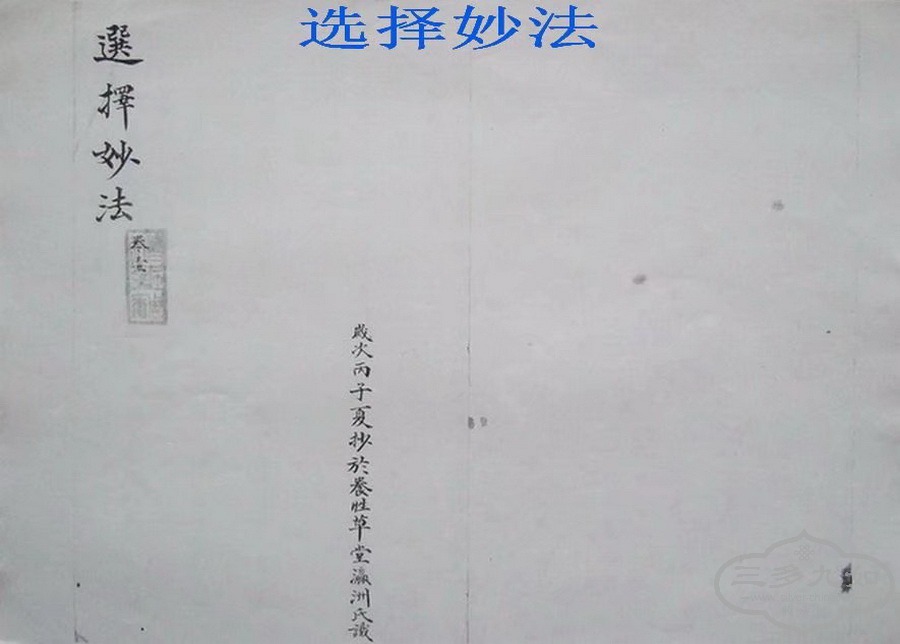 选择妙法
選擇妙法
卷壹
歲次丙子夏抄於養性草堂瀛洲氏識
三多九如